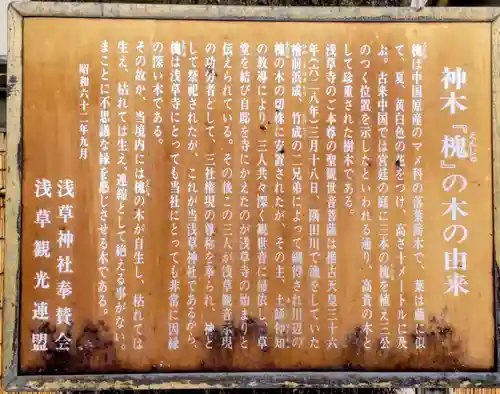 神木『槐』の木の由来
えんじゅ
槐は中国原産のマメ科の落葉喬木で、葉は藤に似
て、夏、黄白色の花をつけ、高さ十メートルに及
ぶ。古来中国では宮廷の庭に三本の槐を植え三公
のつく位置を示したといわれる通り、高貴の木と
して珍重された樹木である。
浅草寺のご本尊の聖観世音菩薩は推古天皇三十六
年(六二八年)三月十八日、隅田川で漁をしていた
檜前浜成、竹成の二兄弟によって網得され川辺の
槐の木の切株に安置されたが、その主、土師仲知
の教導により、三人共々深く観世音に帰依し、草
堂を結び自邸を寺にかえたのが浅草寺の始まりと
伝えられている。その後この三人が浅草観音示現
の功労者として、三社権現の尊称を奉られ、神と
して祭祀されたが、これが当浅草神社であるから、
槐は浅草寺にとっても当社にとっても非常に因縁
の深い木である。
その故か、当境内には槐の木が自生し、枯れては
生え、枯れては生え、連綿として絶える事がない。
まことに不思議な縁を感じさせる木である。
昭和六十二年九月
浅草神社奉賛会
浅草観光連盟